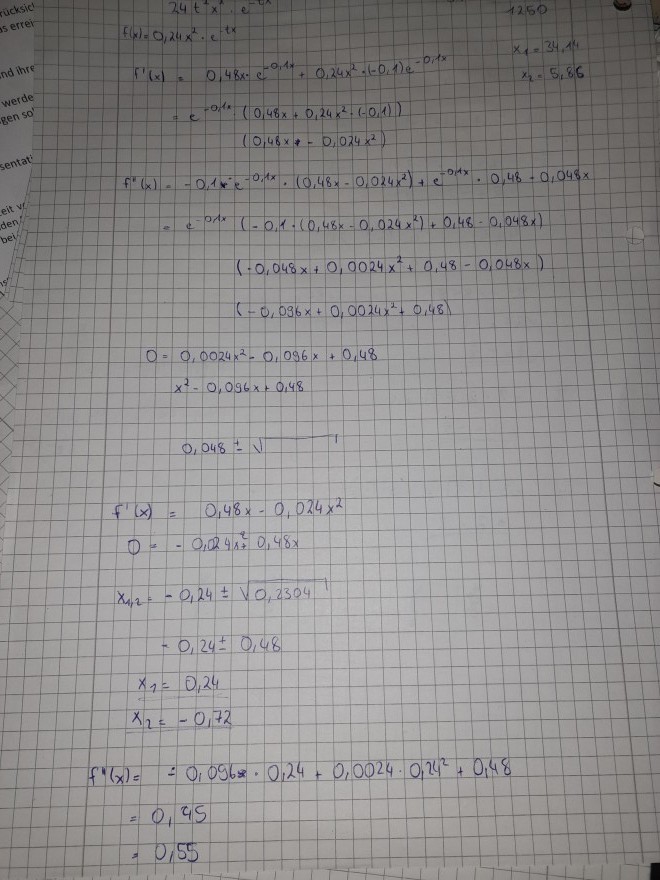 24 t² x² · e^-tx
1250
f(x) = 0,24x² · e^-tx
x₁ = 34,14
x₂ = 5,86
f'(x) = 0,48x · e^-0,1x + 0,24x² · (-0,1)e^-0,1x
= e^-0,1x · (0,48x + 0,24x² · (-0,1))
(0,48x - 0,024x²)
f''(x) = -0,1 e^-0,1x · (0,48x - 0,024x²) + e^-0,1x · 0,48 - 0,048x
= e^-0,1x (-0,1 · (0,48x - 0,024x²) + 0,48 - 0,048x)
(-0,048x + 0,0024x² + 0,48 - 0,048x)
(-0,096x + 0,0024x² + 0,48)
0 = 0,0024x² - 0,096x + 0,48
x² - 0,096x + 0,48
0,048 ± √
f'(x) = 0,48x - 0,024x²
0 = - 0,024x² + 0,48x
x₁,₂ = - 0,24 ± √0,2304
- 0,24 ± 0,48
x₁ = 0,24
x₂ = - 0,72
f''(x) = = 0,096 · 0,24 + 0,0024 · 0,24² + 0,48
= 0,45
= 0,55